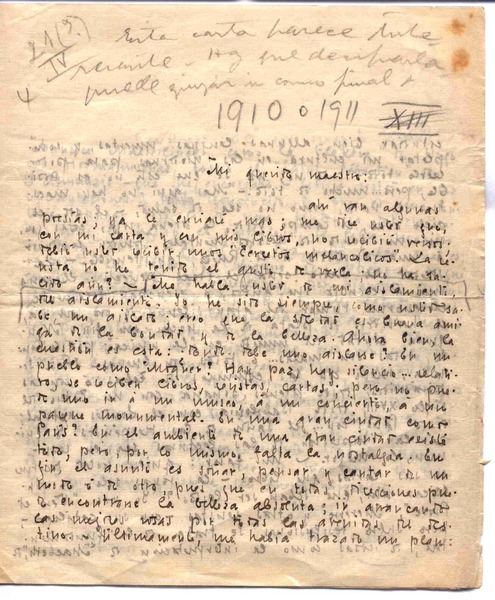 Esta carta parece inte
resante - Hay que descifrarla
puede quizás ir como final
1910 o 1911 XIII
Mi querido maestro:
ahí van algunas
poesías; ya le enviaré más; me dice usted que,
con mi carta y con mis libros, no recibió versos.
debió usted recibir unos sonetos melancólicos. La re-
vista no he tenido el gusto de verla. No ha na-
cido aún? - Me habla usted de mi aislamiento,
de aislamiento. Yo he sido siempre, como usted sa-
be, un aislado; creo que la soledad es buena ami-
ga de la bondad y de la belleza. Ahora bien, la
cuestión es esta: dónde debe uno aislarse? En un
pueblo como Moguer? Hay paz, hay silencio
se reciben libros, revistas, cartas; pero no pue-
de uno ir a un museo, a un concierto, a un
parque monumental. En una gran ciudad como
París? En el ambiente de una gran ciudad
todo, pero, por lo mismo, falta la nostalgia. En
fin, el asunto es soñar, pensar y cantar de un
modo o de otro, pues que en todas direcciones pue-
de encontrarse la belleza absoluta; ir arrancando
las mejores rosas por todas las avenidas del des-
tino. Últimamente, me había trazado un plan: